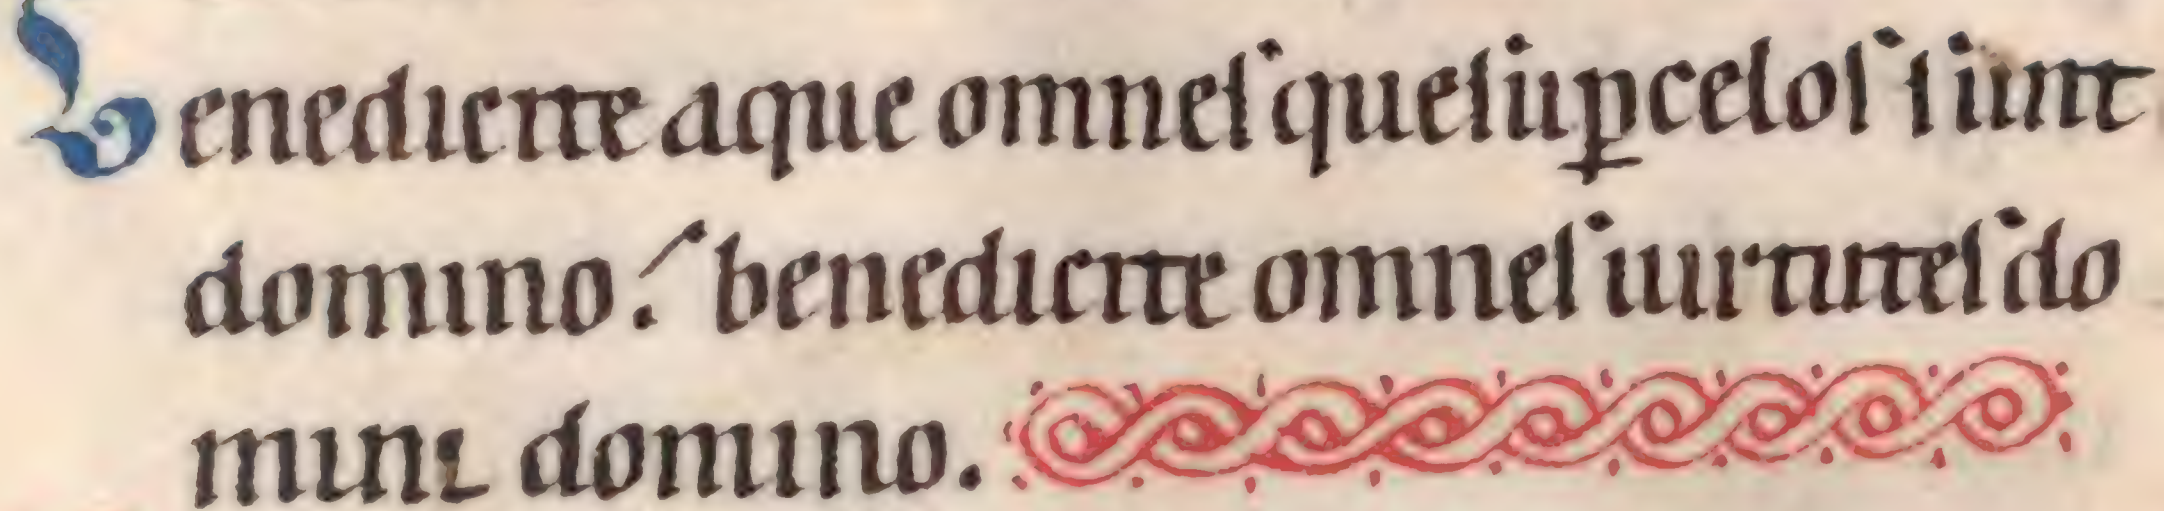 Benedicite aque omnes que sup celos sunt
domino. benedicite omnes uirtutes do
mini domino.